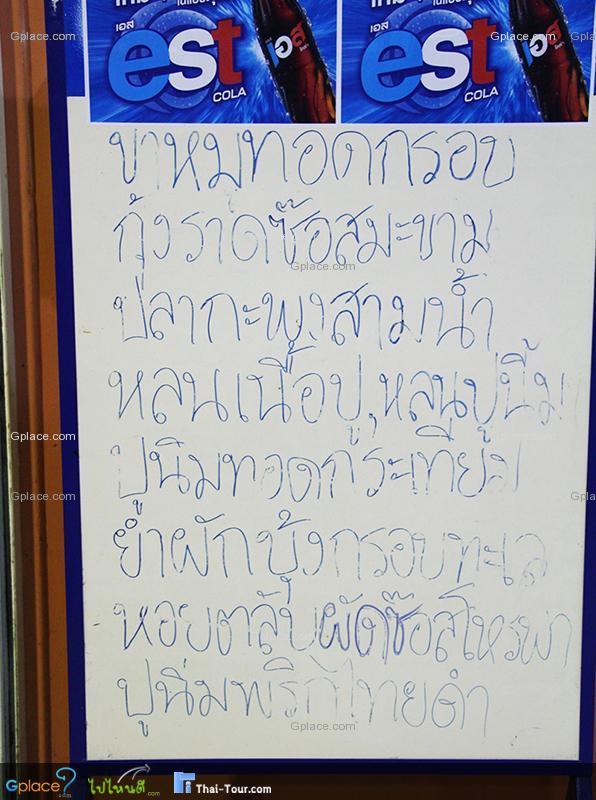 เอส est COLA เอส est COLA
ขาหมูทอดกรอบ
กุ้งราดซ๊อสมะขาม
ปลากะพงสามน้ำ
หลนเนื้อปู,หลนปูนิ้ม
ปูนิ่มทอดกระเทียม
ยำผักบุ้งกรอบทะเล
หอยตลับผัดซ๊อสโหรพา
ปูนิ่มพริกไทยดำ
Gplace.com
Gplace? ไปไหนดี.com Thai-Tour.com